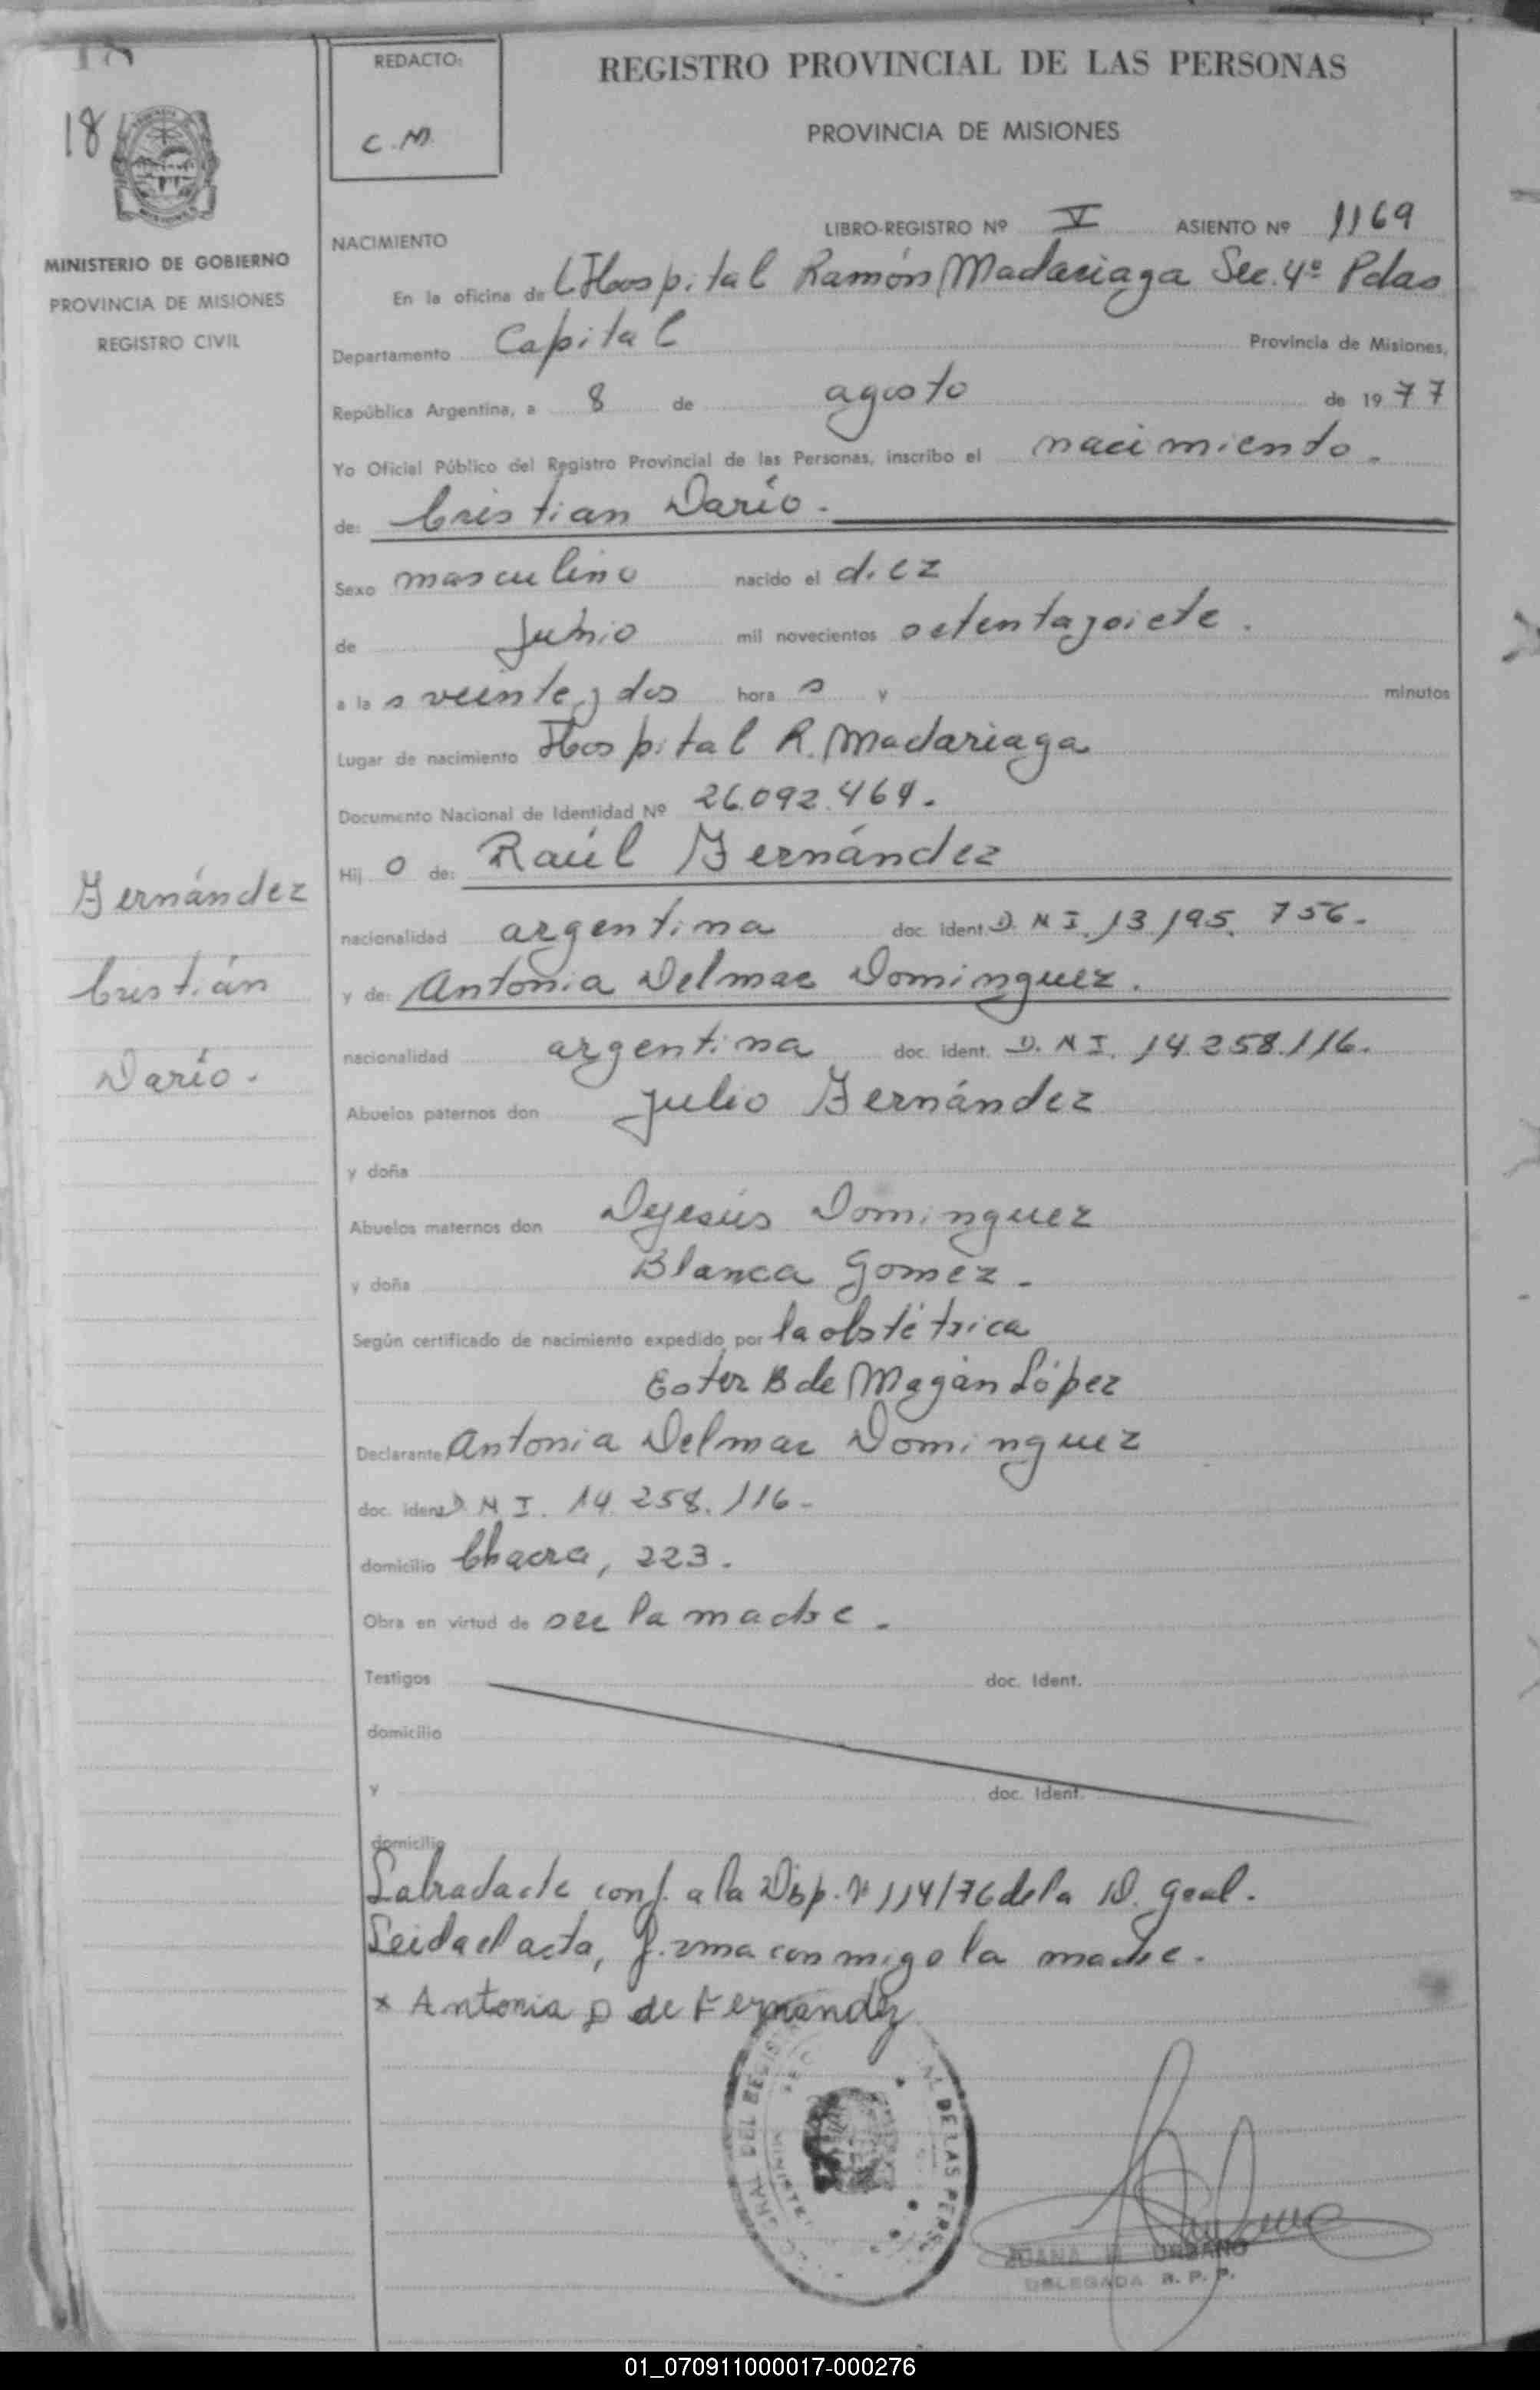 18
18
REDACTO:
C.M.
REGISTRO PROVINCIAL DE LAS PERSONAS
PROVINCIA DE MISIONES
MINISTERIO DE GOBIERNO
PROVINCIA DE MISIONES
REGISTRO CIVIL
LIBRO-REGISTRO Nº V ASIENTO Nº 1169
NACIMIENTO
En la oficina de Hospital Ramón Madariaga Sec. 4º Pdas
Departamento Capital Provincia de Misiones,
República Argentina, a 8 de agosto de 1977
Yo Oficial Público del Registro Provincial de las Personas, inscribo el nacimiento.
de: Cristian Darío.
Sexo masculino nacido el diez
de junio mil novecientos setentaysiete.
a las veinte y dos horas y minutos
Lugar de nacimiento Hospital R. Madariaga
Documento Nacional de Identidad Nº 26.092.464.
Hijo de: Raúl Fernández
nacionalidad argentina doc. ident. D.N.I. 13.195.756.
y de: Antonia Delmar Dominguez.
nacionalidad argentina doc. ident. D.N.I. 14.258.116.
Abuelos paternos don Julio Fernández
y doña
Abuelos maternos don Dejesús Dominguez
y doña Blanca Gomez.
Según certificado de nacimiento expedido por la obstétrica
Ester B de Magán López
Declarante Antonia Delmar Dominguez
doc. ident D.N.I. 14.258.116-
domicilio Chacra, 223.
Obra en virtud de ser la madre.
Testigos doc. Ident.
domicilio
y doc. Ident.
domicilio
Labrada de conf. a la Disp. Nº 114/76 de la D. Gral.
Leida el acta, firma conmigo la madre.
x Antonia D de Fernandez
Fernández
Cristián
Darío.
RAL DEL REGIS
AL DE LAS PERS
MINISTER
JUANA URBANO
DELEGADA R. P. P.
01_070911000017-000276